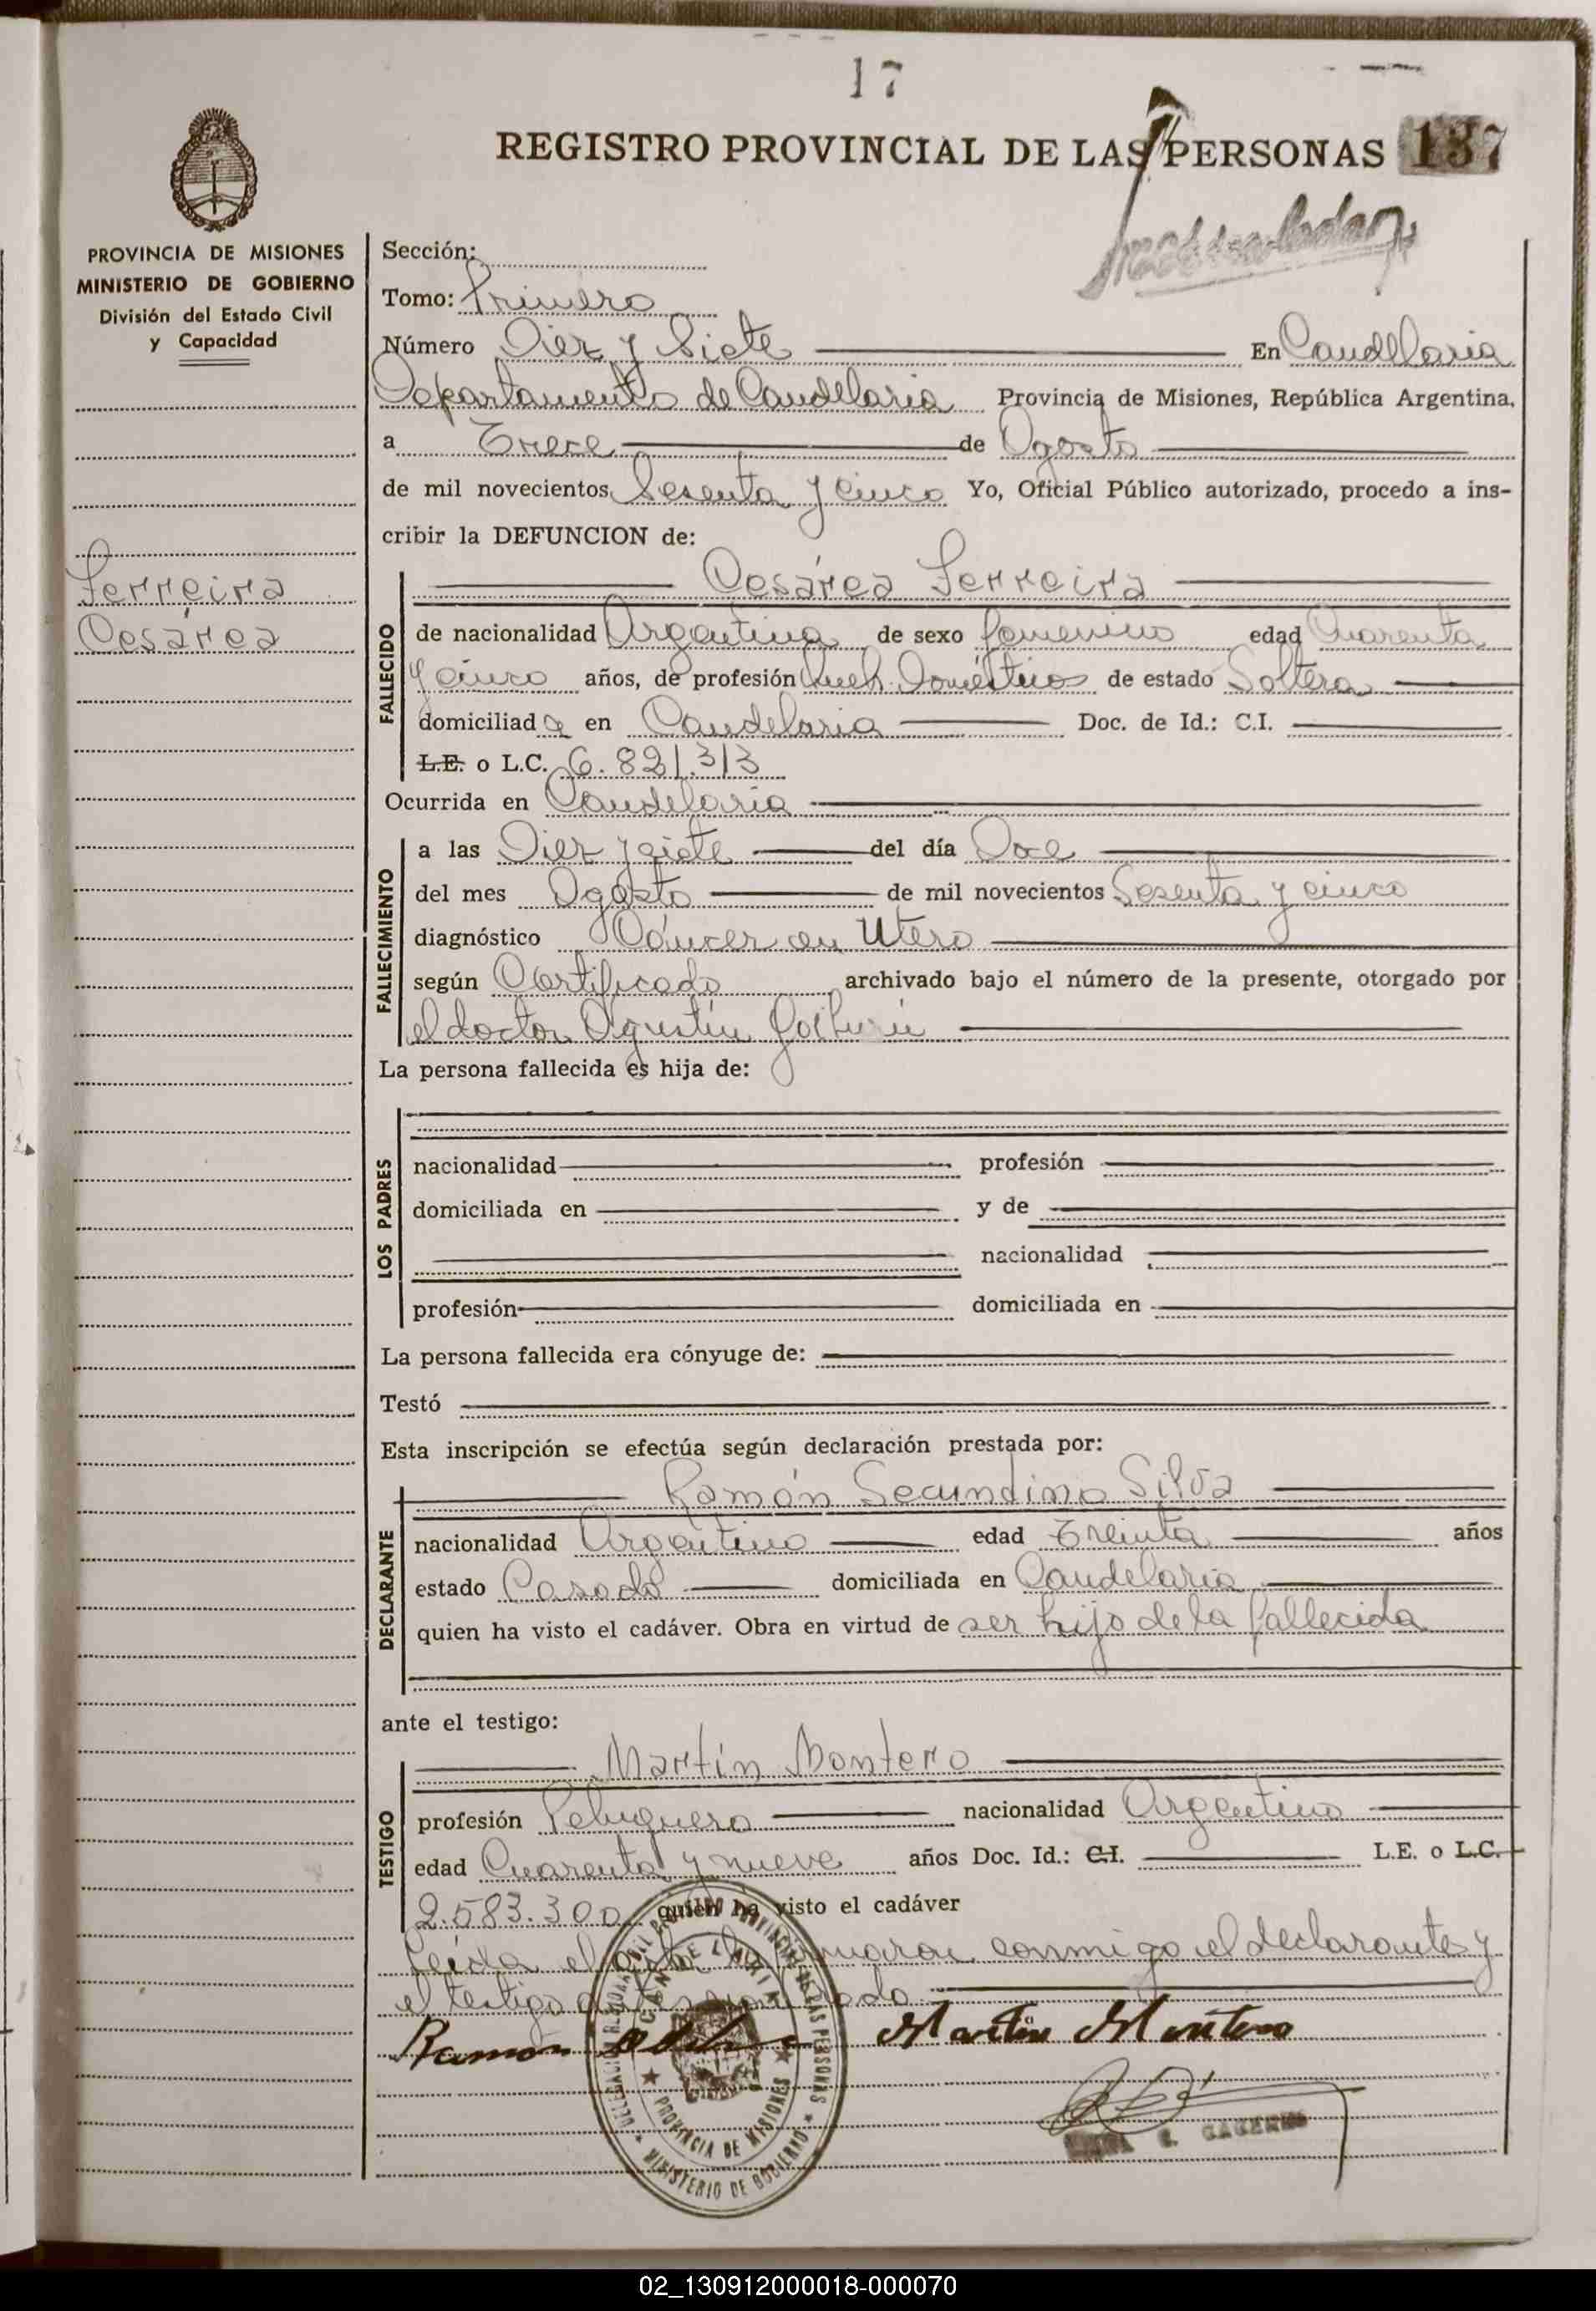 17
REGISTRO PROVINCIAL DE LAS PERSONAS 137
PROVINCIA DE MISIONES
MINISTERIO DE GOBIERNO
División del Estado Civil
y Capacidad
Ferreira
Cesárea
Sección:
Tomo: Primero
Número Diez y Siete En Candelaria
Departamento de Candelaria Provincia de Misiones, República Argentina,
a Trece de Agosto
de mil novecientos Sesenta y cinco Yo, Oficial Público autorizado, procedo a ins-
cribir la DEFUNCION de:
Cesárea Ferreira
FALLECIDO
de nacionalidad Argentina de sexo femenino edad Cuarenta
y cinco años, de profesión Queh. Domésticos de estado Soltera
domiciliada en Candelaria Doc. de Id.: C.I.
L.E. o L.C. 6.821.313
Ocurrida en Candelaria
FALLECIMIENTO
a las Diez y siete del día Doce
del mes Agosto de mil novecientos Sesenta y cinco
diagnóstico Cáncer en Utero
según Certificado archivado bajo el número de la presente, otorgado por
el doctor Agustín Goiburú
La persona fallecida es hija de:
LOS PADRES
nacionalidad profesión
domiciliada en y de
nacionalidad
profesión domiciliada en
La persona fallecida era cónyuge de:
Testó
Esta inscripción se efectúa según declaración prestada por:
Ramón Secundino Silva
DECLARANTE
nacionalidad Argentino edad Treinta años
estado Casado domiciliada en Candelaria
quien ha visto el cadáver. Obra en virtud de ser hijo de la fallecida
ante el testigo:
Martín Montero
TESTIGO
profesión Peluquero nacionalidad Argentino
edad Cuarenta y nueve años Doc. Id.: C.I. L.E. o L.C.
2.583.300 quien ha visto el cadáver
Leída el acta la firmaron conmigo el declarante y
el testigo antes nombrado
Ramon Silva Martin Montero
PROVINCIA DE MISIONES
MINISTERIO DE GOBIERNO
02_130912000018-000070